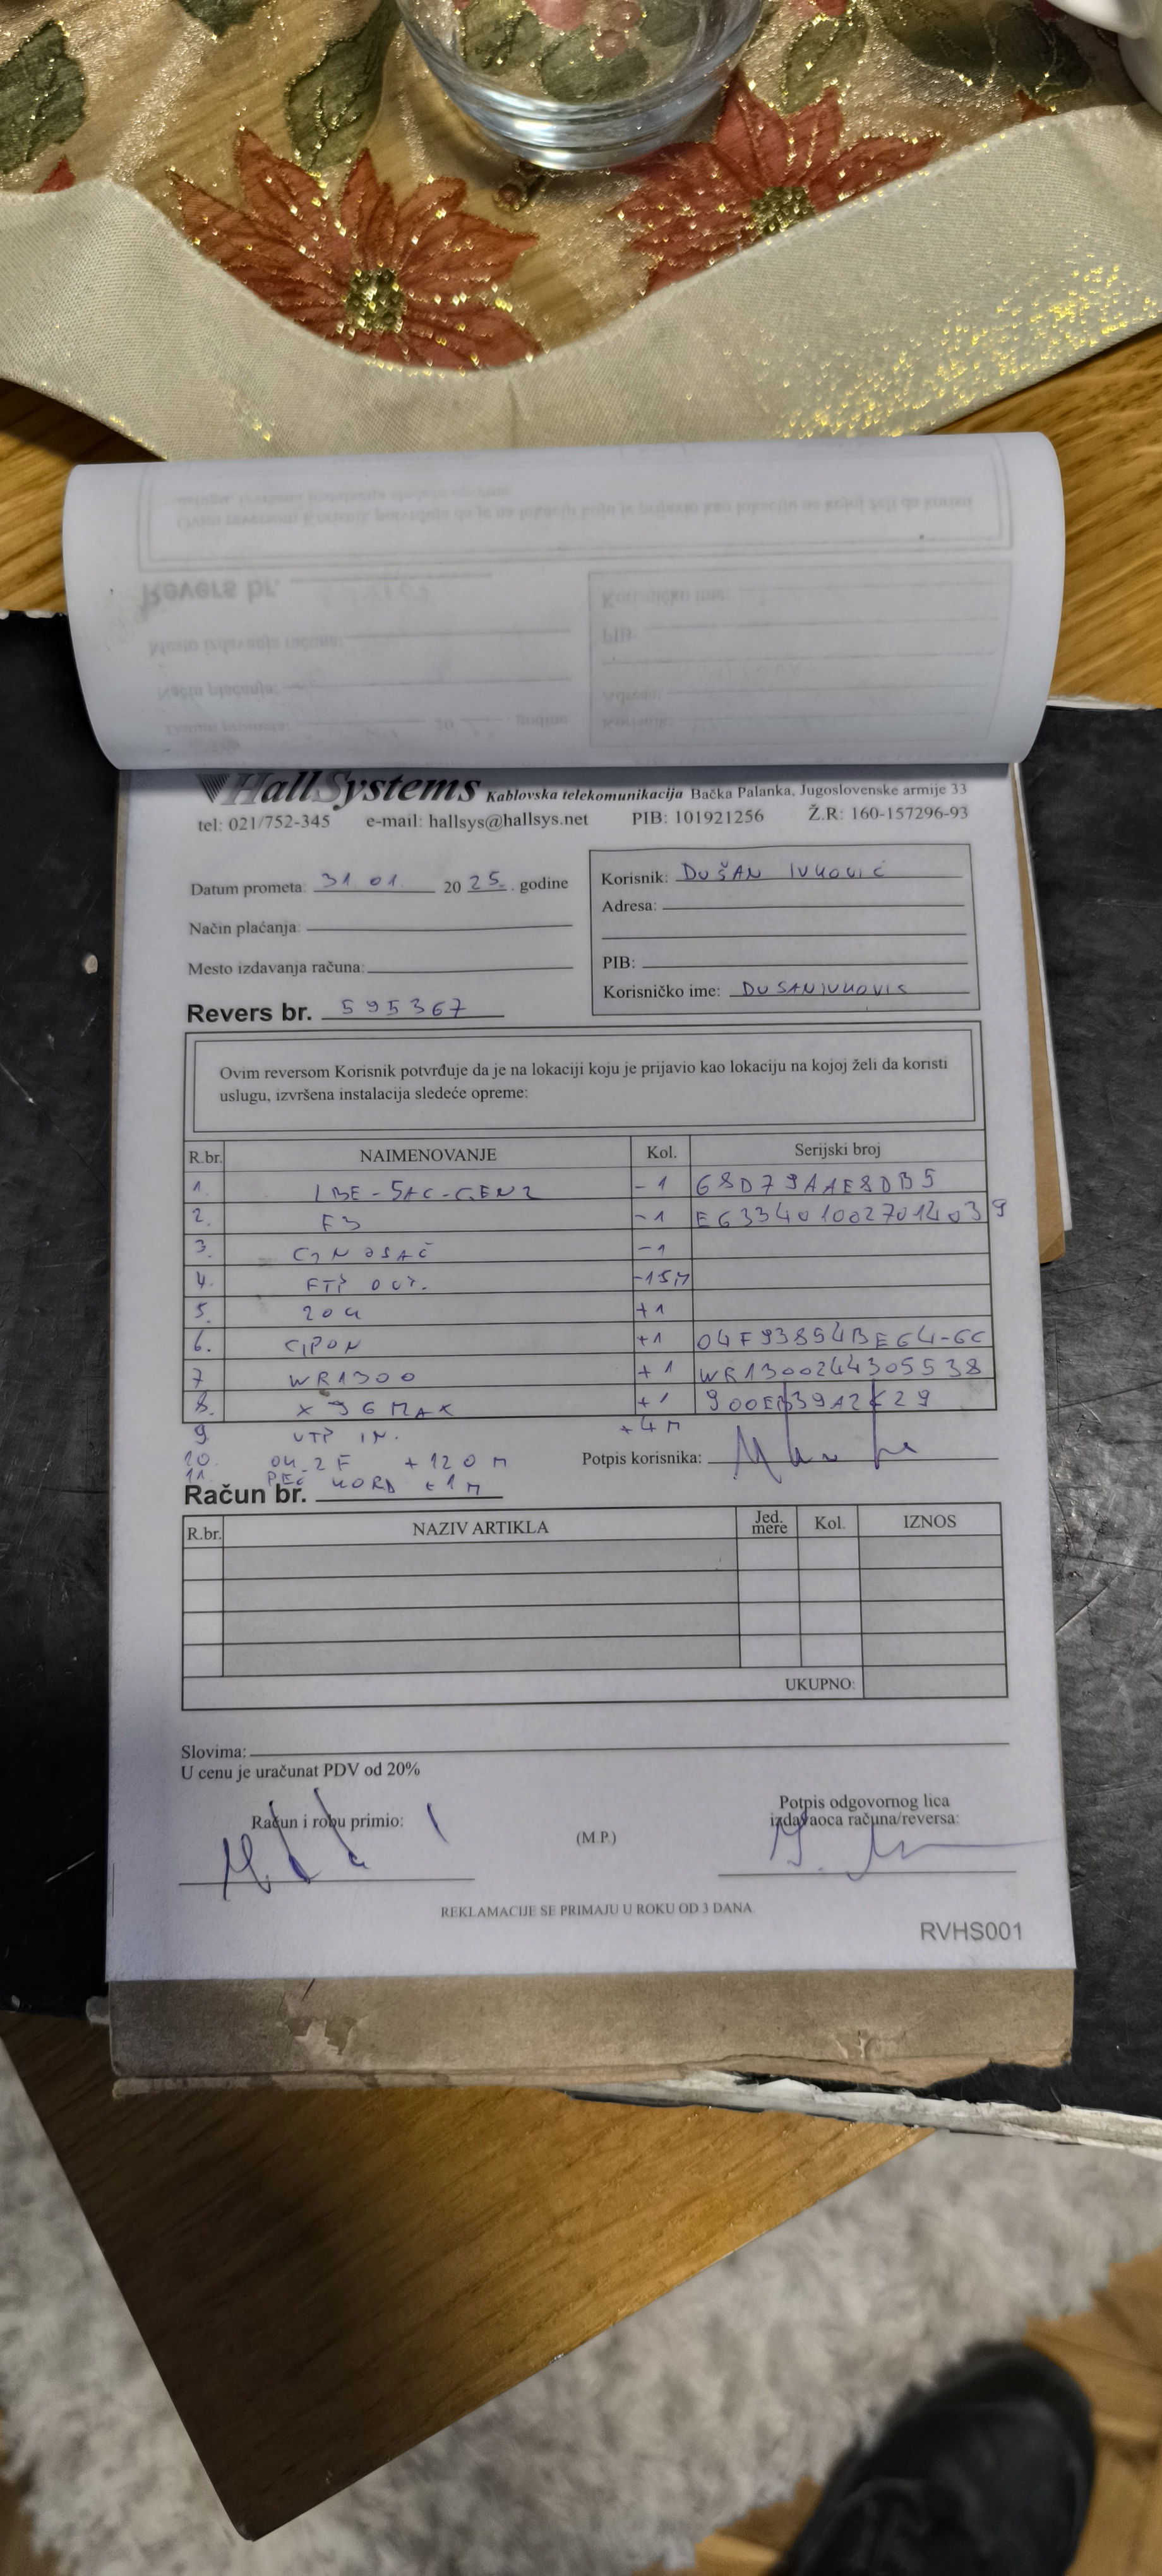 HallSystems Kablovska telekomunikacija Bačka Palanka, Jugoslovenske armije 33
tel: 021/752-345 e-mail: hallsys@hallsys.net PIB: 101921256 Ž.R: 160-157296-93
Datum prometa: 31 01. 20 25. godine
Način plaćanja:
Mesto izdavanja računa:
Revers br. 595367
Korisnik: DUŠAN IVKOVIĆ
Adresa:
PIB:
Korisničko ime: DUSANIVKOVIC
Ovim reversom Korisnik potvrđuje da je na lokaciji koju je prijavio kao lokaciju na kojoj želi da koristi
uslugu, izvršena instalacija sledeće opreme:
R.br. NAIMENOVANJE Kol. Serijski broj
1. LBE-5AC-GEN2 -1 68D79AAE8DB5
2. F3 -1 EG33401002701403 9
3. NOSAČ -1
4. FTP OUT. -15M
5. +1
6. GPON +1 04F93854BE64-6C
7 WR1300 +1 WR1300244305538
8. X96MAX +1
9 UTP IN. +4M
10. OK_2F +120M
11. +1M
Potpis korisnika:
Račun br.
R.br. NAZIV ARTIKLA Jed. mere Kol. IZNOS
UKUPNO:
Slovima:
U cenu je uračunat PDV od 20%
Račun i robu primio:
(M.P.)
Potpis odgovornog lica
izdavaoca računa/reversa:
REKLAMACIJE SE PRIMAJU U ROKU OD 3 DANA.
RVHS001